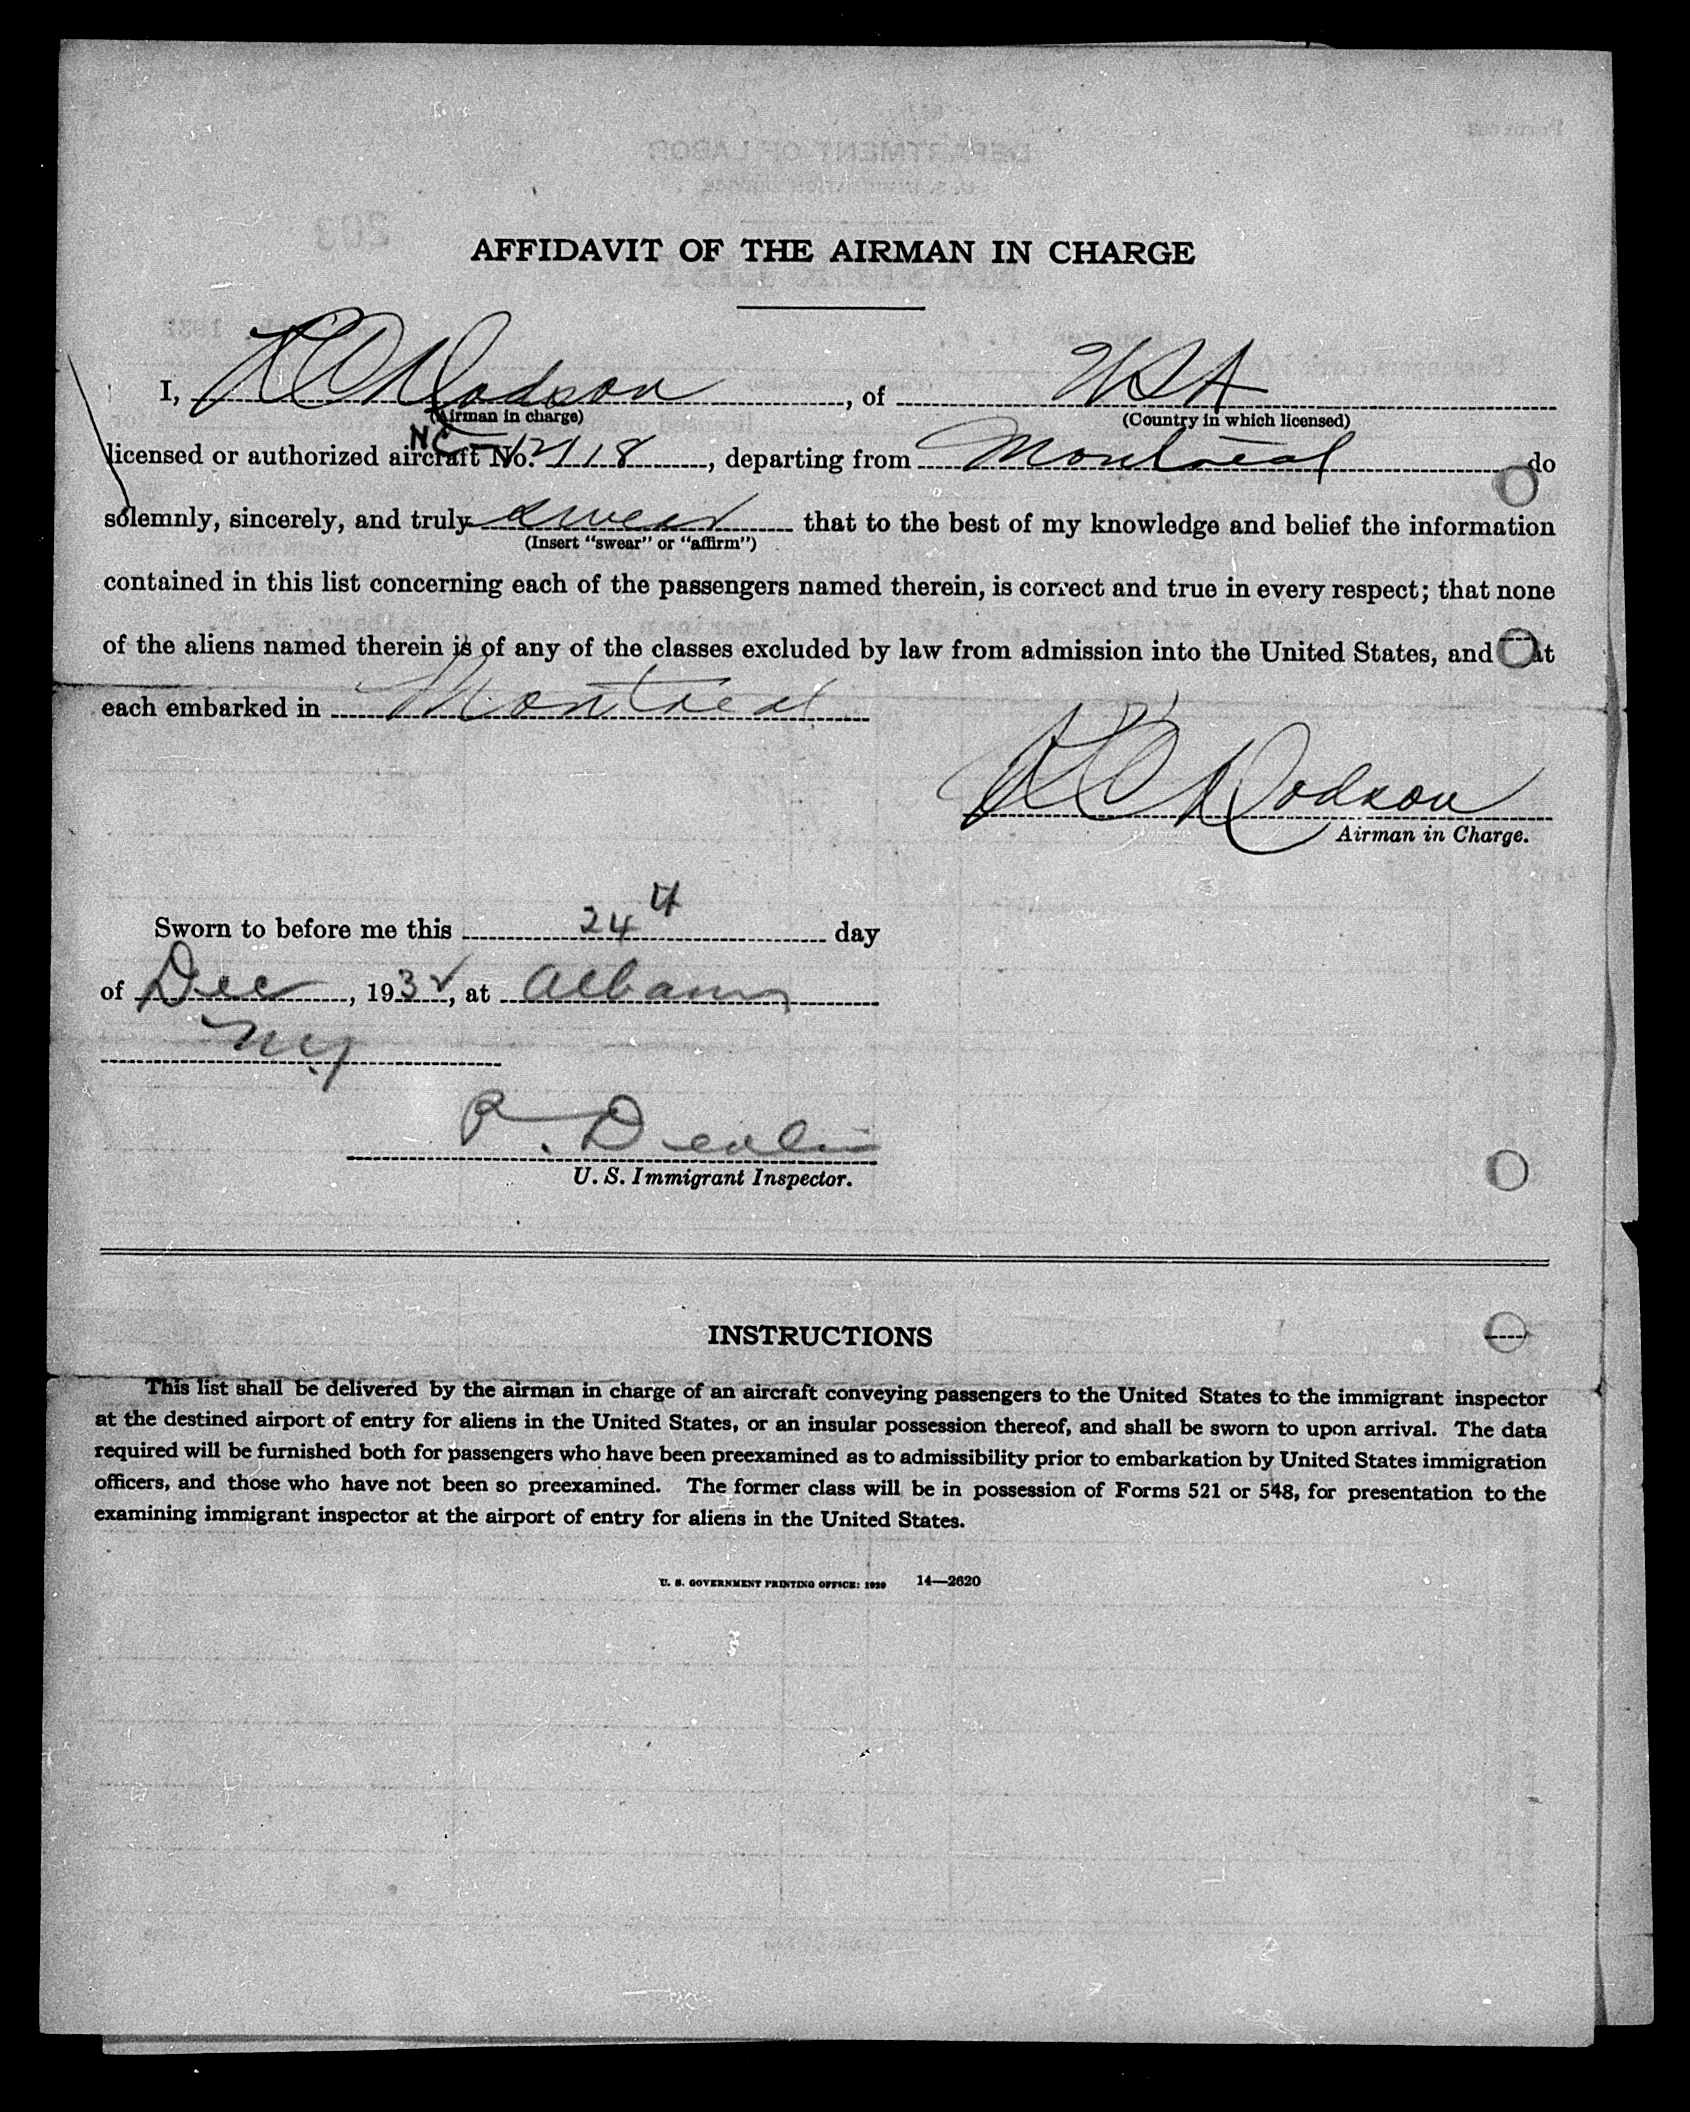 AFFIDAVIT OF THE AIRMAN IN CHARGE
I, R C Dodson, of USA
(Airman in charge) (Country in which licensed)
licensed or authorized aircraft No. NC-12118, departing from Montreal do
solemnly, sincerely, and truly swear that to the best of my knowledge and belief the information
(Insert "swear" or "affirm")
contained in this list concerning each of the passengers named therein, is correct and true in every respect; that none
of the aliens named therein is of any of the classes excluded by law from admission into the United States, and at
each embarked in Montreal
Dodson
Airman in Charge.
Sworn to before me this 24th day
of Dec, 1932, at Albany
NY
P. Devlin
U. S. Immigrant Inspector.
INSTRUCTIONS
This list shall be delivered by the airman in charge of an aircraft conveying passengers to the United States to the immigrant inspector
at the destined airport of entry for aliens in the United States, or an insular possession thereof, and shall be sworn to upon arrival. The data
required will be furnished both for passengers who have been preexamined as to admissibility prior to embarkation by United States immigration
officers, and those who have not been so preexamined. The former class will be in possession of Forms 521 or 548, for presentation to the
examining immigrant inspector at the airport of entry for aliens in the United States.
U. S. GOVERNMENT PRINTING OFFICE: 1929 14—2620